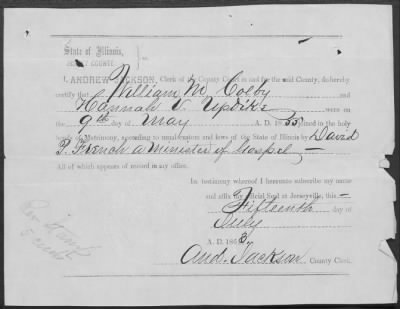 State of Illinois,
JERSEY COUNTY.
I, ANDREW JACKSON, Clerk of the County Court in and for the said County, do hereby
certify that William M Colby and
Hannah V. Updike were on
the 9th day of May A. D. 1855 joined in the holy
bonds of Matrimony, according to the customs and laws of the State of Illinois by David
P. French a minister of Gospel
All of which appears of record in my office.
In testimony whereof I hereunto subscribe my name
and affix my official Seal at Jerseyville, this
Fifteenth day of
July
A. D. 1863
And. Jackson County Clerk.